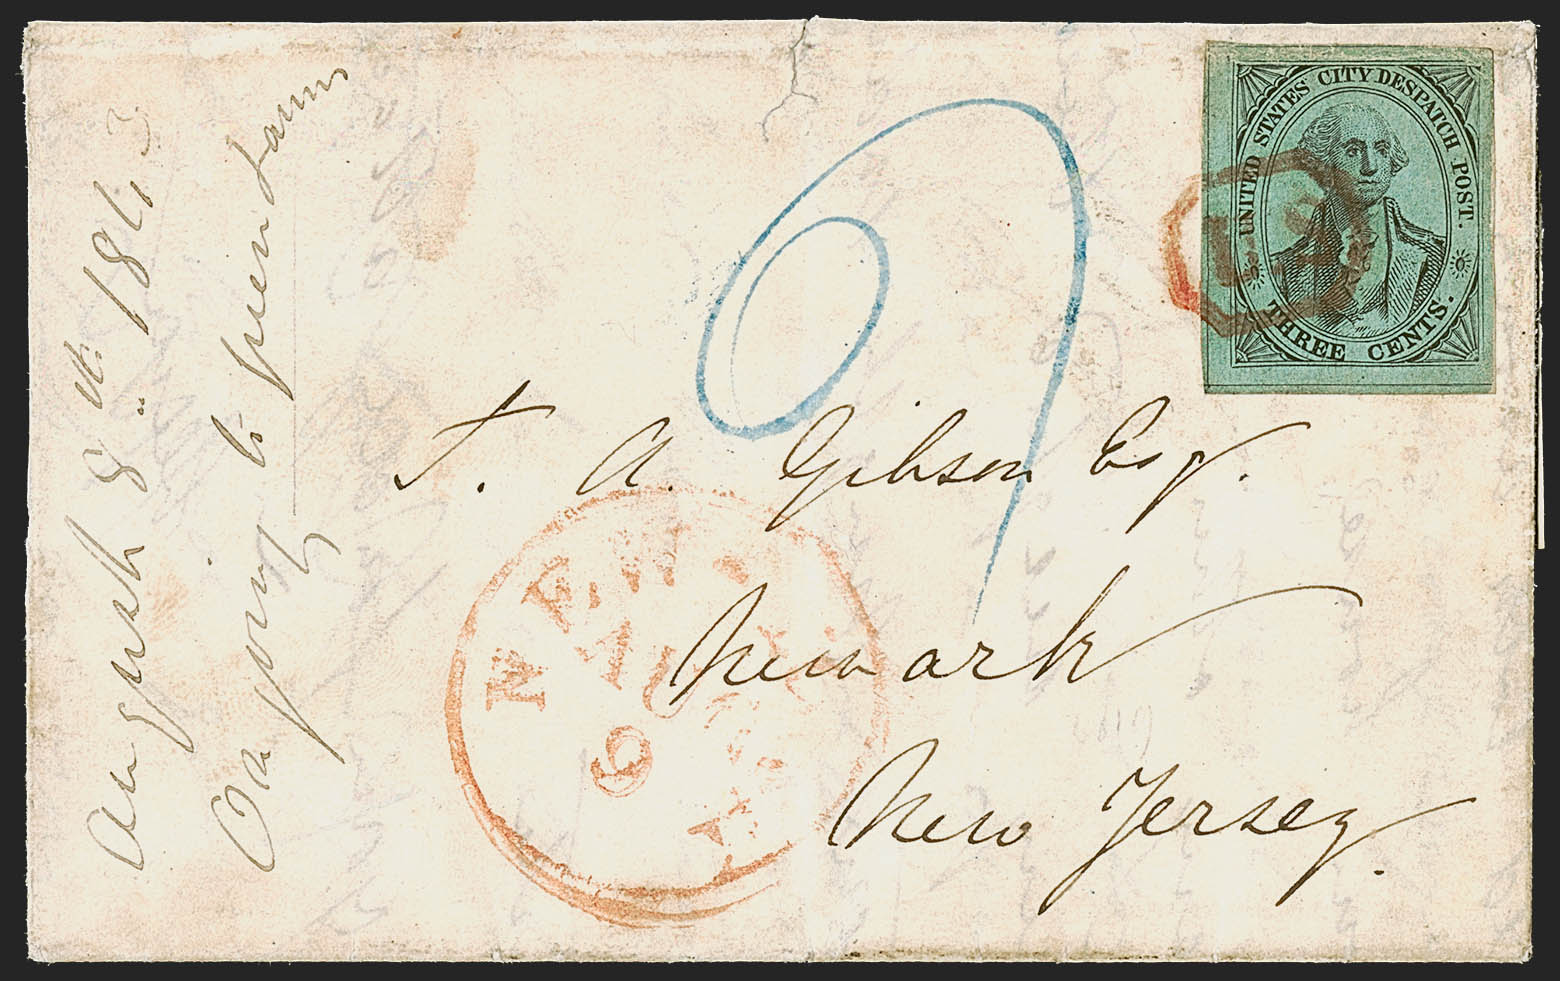 August 8th. 1843
UNITED STATES CITY DESPATCH POST.
THREE CENTS.
U.S
9
J. A. Gibson Esq.
Newark
New Jersey.
NEW-YORK
AUG
9